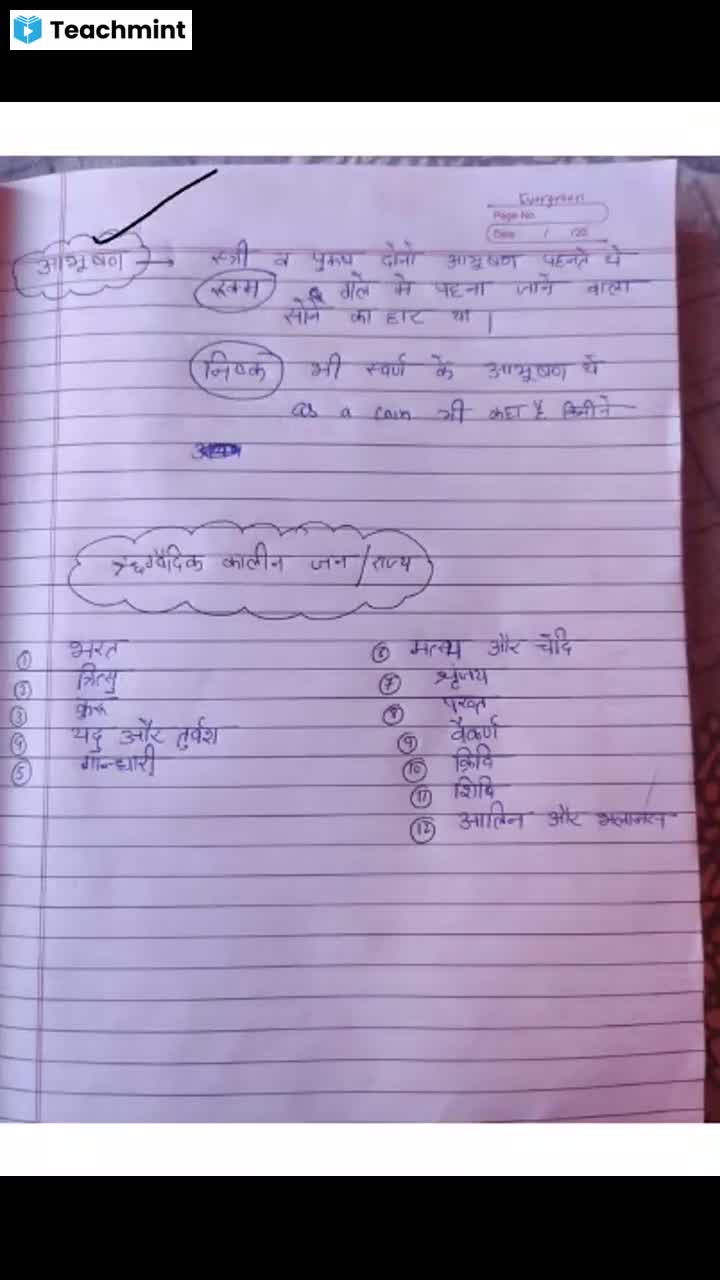 Teachmint
Evergreen
Page No.
Date / /20
आभूषण → स्त्री व पुरुष दोनो आभूषण पहनते थे
रुक्म गले मे पहना जाने वाला
सोने का हार था |
निष्क भी स्वर्ण के आभूषण थे
as a coin भी कहा है किसीने
ऋग्वैदिक कालीन जन/राज्य
① भरत
② त्रित्सु
③ कुरू
④ यदु और तुर्वश
⑤ गान्धारी
⑥ मत्स्य और चेदि
⑦ श्रृंजय
⑧ पख्त
⑨ वैकर्ण
⑩ क्रिवि
⑪ शिवि
⑫ आलिन और भलानस